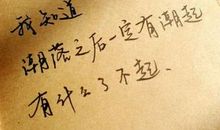 我知道
潮落之后一定有潮起
有什么了不起、